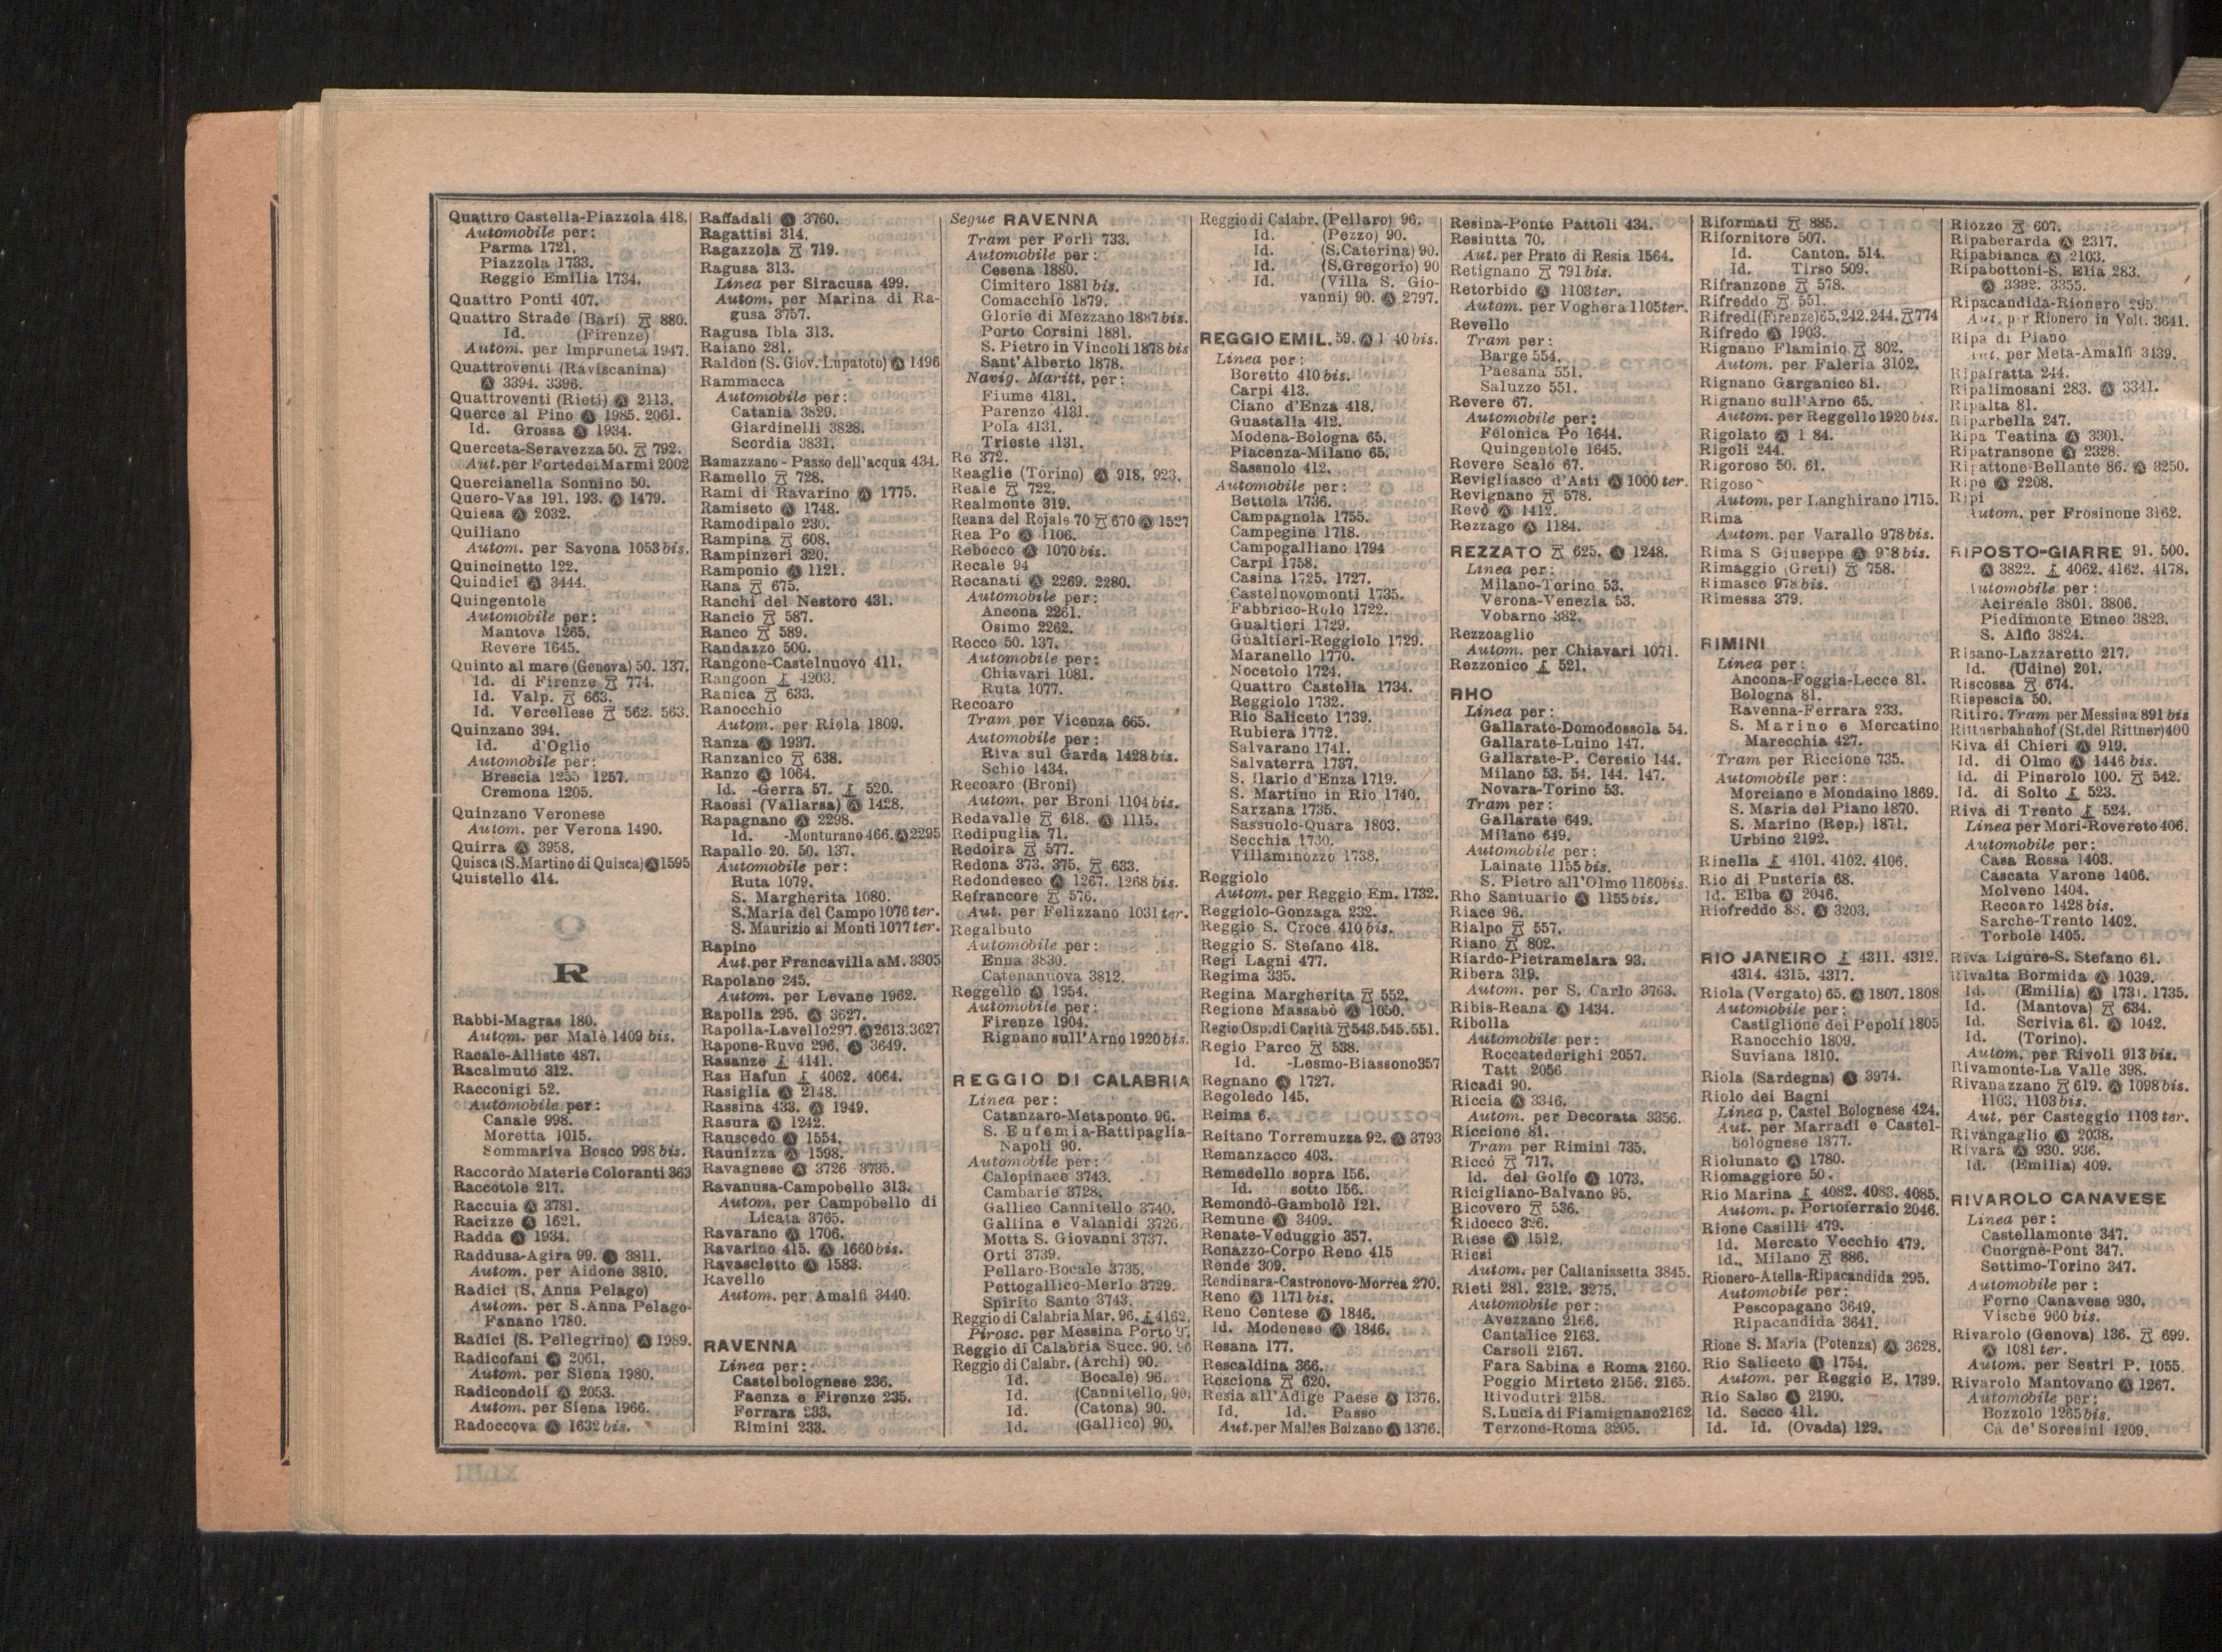 Quattro Castella-Piazzola 418.
Automobile per:
Parma 1721.
Piazzola 1733.
Reggio Emilia 1734.
Quattro Ponti 407.
Quattro Strade (Bari) 880.
Id. (Firenze)
Autom. per Impruneta 1947.
Quattroventi (Raviscanina)
3394. 3396.
Quattroventi (Rieti) 2113.
Querce al Pino 1985. 2061.
Id. Grossa 1934.
Querceta-Seravezza 50. 792.
Aut. per Forte dei Marmi 2002
Quercianella Sonnino 50.
Quero-Vas 191. 193. 1479.
Quiesa 2032.
Quiliano
Autom. per Savona 1053 bis.
Quincinetto 122.
Quindici 3444.
Quingentole
Automobile per:
Mantova 1265.
Revere 1645.
Quinto al mare (Genova) 50. 137.
Id. di Firenze 774.
Id. Valp. 663.
Id. Vercellese 562. 563.
Quinzano 394.
Id. d'Oglio
Automobile per:
Brescia 1255 1257.
Cremona 1205.
Quinzano Veronese
Autom. per Verona 1490.
Quirra 3958.
Quisca (S. Martino di Quisca) 1595
Quistello 414.
R
Rabbi-Magras 180.
Autom. per Malè 1409 bis.
Racale-Alliste 487.
Racalmuto 312.
Racconigi 52.
Automobile per:
Canale 998.
Moretta 1015.
Sommariva Bosco 998 bis.
Raccordo Materie Coloranti 363
Raccotole 217.
Raccuia 3781.
Racizze 1621.
Radda 1934.
Raddusa-Agira 99. 3811.
Autom. per Aidone 3810.
Radici (S. Anna Pelago)
Autom. per S. Anna Pelago-
Fanano 1780.
Radici (S. Pellegrino) 1989.
Radicofani 2061.
Autom. per Siena 1980.
Radicondoli 2053.
Autom. per Siena 1966.
Radoccova 1632 bis.
Raffadali 3760.
Ragattisi 314.
Ragazzola 719.
Ragusa 313.
Linea per Siracusa 499.
Autom. per Marina di Ra-
gusa 3757.
Ragusa Ibla 313.
Raiano 281.
Raldon (S. Giov. Lupatoto) 1496
Rammacca
Automobile per:
Catania 3829.
Giardinelli 3828.
Scordia 3831.
Ramazzano - Passo dell'acqua 434.
Ramello 728.
Rami di Ravarino 1775.
Ramiseto 1748.
Ramodipalo 230.
Rampina 608.
Rampinzeri 320.
Ramponio 1121.
Rana 675.
Ranchi del Nestoro 431.
Rancio 587.
Ranco 589.
Randazzo 500.
Rangone-Castelnuovo 411.
Rangoon 4203.
Ranica 633.
Ranocchio
Autom. per Riola 1809.
Ranza 1937.
Ranzanico 638.
Ranzo 1064.
Id. -Gerra 57. 520.
Raossi (Vallarsa) 1428.
Rapagnano 2298.
Id. -Monturano 466. 2295
Rapallo 20. 50. 137.
Automobile per:
Ruta 1079.
S. Margherita 1080.
S. Maria del Campo 1076 ter.
S. Maurizio ai Monti 1077 ter.
Rapino
Aut. per Francavilla a M. 3305
Rapolano 245.
Autom. per Levane 1962.
Rapolla 295. 3627.
Rapolla-Lavello 297. 2613. 3627
Rapone-Ruvo 296. 3649.
Rasanze 4141.
Ras Hafun 4062. 4064.
Rasiglia 2148.
Rassina 433. 1949.
Rasura 1242.
Rauscedo 1554.
Raunizza 1598.
Ravagnese 3726 3735.
Ravanusa-Campobello 313.
Autom. per Campobello di
Licata 3765.
Ravarano 1706.
Ravarino 415. 1660 bis.
Ravascletto 1583.
Ravello
Autom. per Amalfi 3440.
RAVENNA
Linea per:
Castelbolognese 236.
Faenza e Firenze 235.
Ferrara 233.
Rimini 233.
Segue RAVENNA
Tram per Forlì 733.
Automobile per:
Cesena 1880.
Cimitero 1881 bis.
Comacchio 1879.
Glorie di Mezzano 1887 bis.
Porto Corsini 1881.
S. Pietro in Vincoli 1878 bis
Sant'Alberto 1878.
Navig. Maritt. per:
Fiume 4131.
Parenzo 4131.
Pola 4131.
Trieste 4131.
Re 372.
Reaglie (Torino) 918. 923.
Reale 722.
Realmonte 319.
Reana del Rojale 70 670 1527
Rea Po 1106.
Rebocco 1070 bis.
Recale 94
Recanati 2269. 2280.
Automobile per:
Ancona 2261.
Osimo 2262.
Recco 50. 137.
Automobile per:
Chiavari 1081.
Ruta 1077.
Recoaro
Tram per Vicenza 665.
Automobile per:
Riva sul Garda 1428 bis.
Schio 1434.
Recoaro (Broni)
Autom. per Broni 1104 bis.
Redavalle 618. 1115.
Redipuglia 71.
Redoira 577.
Redona 373. 375. 633.
Redondesco 1267. 1268 bis.
Refrancore 576.
Aut. per Felizzano 1031 ter.
Regalbuto
Automobile per:
Enna 3830.
Catenanuova 3812.
Reggello 1954.
Automobile per:
Firenze 1904.
Rignano sull'Arno 1920 bis.
REGGIO DI CALABRIA
Linea per:
Catanzaro-Metaponto 96.
S. Eufemia-Battipaglia-
Napoli 90.
Automobile per:
Calopinace 3743.
Cambarie 3728.
Gallico Cannitello 3740.
Gallina e Valanidi 3726.
Motta S. Giovanni 3737.
Orti 3739.
Pellaro-Bocale 3735.
Pettogallico-Merlo 3729.
Spirito Santo 3743.
Reggio di Calabria Mar. 96. 4162.
Pirosc. per Messina Porto
Reggio di Calabria Succ. 90. 96
Reggio di Calabr. (Archi) 90.
Id. Bocale) 96.
Id. (Cannitello, 90.
Id. (Catona) 90.
Id. (Gallico) 90.
Reggio di Calabr. (Pellaro) 96.
Id. (Pezzo) 90.
Id. (S. Caterina) 90.
Id. (S. Gregorio) 90
Id. (Villa S. Gio-
vanni) 90. 2797.
REGGIO EMIL. 59. 1 40 bis.
Linea per:
Boretto 410 bis.
Carpi 413.
Ciano d'Enza 418.
Guastalla 412.
Modena-Bologna 65.
Piacenza-Milano 65.
Sassuolo 412.
Automobile per:
Bettola 1736.
Campagnola 1755.
Campegine 1718.
Campogalliano 1794
Carpi 1758.
Casina 1725. 1727.
Castelnovomonti 1735.
Fabbrico-Rolo 1722.
Gualtieri 1729.
Gualtieri-Reggiolo 1729.
Maranello 1770.
Nocetolo 1724.
Quattro Castella 1734.
Reggiolo 1732.
Rio Saliceto 1739.
Rubiera 1772.
Salvarano 1741.
Salvaterra 1737.
S. Ilario d'Enza 1719.
S. Martino in Rio 1740.
Sarzana 1735.
Sassuolo-Quara 1803.
Secchia 1730.
Villaminozzo 1738.
Reggiolo
Autom. per Reggio Em. 1732.
Reggiolo-Gonzaga 232.
Reggio S. Croce 410 bis.
Reggio S. Stefano 418.
Regi Lagni 477.
Regima 335.
Regina Margherita 552.
Regione Massabò 1050.
Regio Osp. di Carità 543. 545. 551.
Regio Parco 538.
Id. -Lesmo-Biassono 357
Regnano 1727.
Regoledo 145.
Reims 6.
Reitano Torremuzza 92. 3793
Remanzacco 403.
Remedello sopra 156.
Id. sotto 156.
Remondò-Gambolò 121.
Remune 3409.
Renate-Veduggio 357.
Renazzo-Corpo Reno 415
Rende 309.
Rendinara-Castronovo-Morrea 270.
Reno 1171 bis.
Reno Centese 1846.
Id. Modenese 1846.
Resana 177.
Rescaldina 366.
Rosciona 620.
Resia all'Adige Paese 1376.
Id. Id. Passo
Aut. per Malles Bolzano 1376.
Resina-Ponte Pattoli 434.
Resiutta 70.
Aut. per Prato di Resia 1564.
Retignano 791 bis.
Retorbido 1103 ter.
Autom. per Voghera 1105 ter.
Revello
Tram per:
Barge 554.
Paesana 551.
Saluzzo 551.
Revere 67.
Automobile per:
Felonica Po 1644.
Quingentole 1645.
Revere Scalo 67.
Revigliasco d'Asti 1000 ter.
Revignano 578.
Revò 1412.
Rezzago 1184.
REZZATO 625. 1248.
Linea per:
Milano-Torino 53.
Verona-Venezia 53.
Vobarno 382.
Rezzoaglio
Autom. per Chiavari 1071.
Rezzonico 521.
RHO
Linea per:
Gallarate-Domodossola 54.
Gallarate-Luino 147.
Gallarate-P. Ceresio 144.
Milano 53. 54. 144. 147.
Novara-Torino 53.
Tram per:
Gallarate 649.
Milano 649.
Automobile per:
Lainate 1155 bis.
S. Pietro all'Olmo 1160 bis.
Rho Santuario 1155 bis.
Riace 96.
Rialpo 557.
Riano 802.
Riardo-Pietramelara 93.
Ribera 319.
Autom. per S. Carlo 3763.
Ribis-Reana 1434.
Ribolla
Automobile per:
Roccatederighi 2057.
Tatt 2056
Ricadi 90.
Riccia 3346.
Autom. per Decorata 3356.
Riccione 81.
Tram per Rimini 735.
Riccò 717.
Id. del Golfo 1073.
Ricigliano-Balvano 95.
Ricovero 536.
Ridocco 326.
Riese 1512.
Riesi
Autom. per Caltanissetta 3845.
Rieti 281. 2312. 3275.
Automobile per:
Avezzano 2166.
Cantalice 2163.
Carsoli 2167.
Fara Sabina e Roma 2160.
Poggio Mirteto 2156. 2165.
Rivodutri 2158.
S. Lucia di Fiamignano 2162
Terzone-Roma 3205.
Riformati 885.
Rifornitore 507.
Id. Canton. 514.
Id. Tirso 509.
Rifranzone 578.
Rifreddo 551.
Rifredi (Firenze) 65. 242. 244. 774
Rifredo 1903.
Rignano Flaminio 802.
Autom. per Faleria 3102.
Rignano Garganico 81.
Rignano sull'Arno 65.
Autom. per Reggello 1920 bis.
Rigolato 1 84.
Rigoli 244.
Rigoroso 50. 61.
Rigoso
Autom. per Langhirano 1715.
Rima
Autom. per Varallo 978 bis.
Rima S Giuseppe 978 bis.
Rimaggio (Greti) 758.
Rimasco 978 bis.
Rimessa 379.
RIMINI
Linea per:
Ancona-Foggia-Lecce 81.
Bologna 81.
Ravenna-Ferrara 233.
S. Marino e Mercatino
Marecchia 427.
Tram per Riccione 735.
Automobile per:
Morciano e Mondaino 1869.
S. Maria del Piano 1870.
S. Marino (Rep.) 1871.
Urbino 2192.
Rinella 4101. 4102. 4106.
Rio di Pusteria 68.
Id. Elba 2046.
Riofreddo 88. 3203.
RIO JANEIRO 4311. 4312.
4314. 4315. 4317.
Riola (Vergato) 65. 1807. 1808
Automobile per:
Castiglione dei Pepoli 1805
Ranocchio 1809.
Suviana 1810.
Riola (Sardegna) 3974.
Riolo dei Bagni
Linea p. Castel Bolognese 424.
Aut. per Marradi e Castel-
bolognese 1877.
Riolunato 1780.
Riomaggiore 50.
Rio Marina 4082. 4083. 4085.
Autom. p. Portoferraio 2046.
Rione Casilli 479.
Id. Mercato Vecchio 479.
Id. Milano 886.
Rionero-Atella-Ripacandida 295.
Automobile per:
Pescopagano 3649.
Ripacandida 3641.
Rione S. Maria (Potenza) 3628.
Rio Saliceto 1754.
Autom. per Reggio E. 1739.
Rio Salso 2190.
Id. Secco 411.
Id. Id. (Ovada) 129.
Riozzo 607.
Ripaberarda 2317.
Ripabianca 2103.
Ripabottoni-S. Elia 283.
3332. 3355.
Ripacandida-Rionero 295.
Aut. per Rionero in Volt. 3641.
Ripa di Piano
Aut. per Meta-Amalfi 3139.
Ripafratta 244.
Ripalimosani 283. 3341.
Ripalta 81.
Riparbella 247.
Ripa Teatina 3301.
Ripatransone 2328.
Ripattone-Bellante 86. 3250.
Ripe 2208.
Ripi
Autom. per Frosinone 3162.
RIPOSTO-GIARRE 91. 500.
3822. 4062. 4162. 4178.
Automobile per:
Acireale 3801. 3806.
Piedimonte Etneo 3823.
S. Alfio 3824.
Risano-Lazzaretto 217.
Id. (Udine) 201.
Riscossa 674.
Rispescia 50.
Ritiro. Tram per Messina 891 bis
Rittnerbahnhof (St. del Rittner) 400
Riva di Chieri 919.
Id. di Olmo 1446 bis.
Id. di Pinerolo 100. 542.
Id. di Solto 523.
Riva di Trento 524.
Linea per Mori-Rovereto 406.
Automobile per:
Casa Rossa 1403.
Cascata Varone 1406.
Molveno 1404.
Recoaro 1428 bis.
Sarche-Trento 1402.
Torbole 1405.
Riva Ligure-S. Stefano 61.
Rivalta Bormida 1039.
Id. (Emilia) 1731. 1735.
Id. (Mantova) 634.
Id. Scrivia 61. 1042.
Id. (Torino).
Autom. per Rivoli 913 bis.
Rivamonte-La Valle 398.
Rivanazzano 619. 1098 bis.
1103. 1103 bis.
Aut. per Casteggio 1103 ter.
Rivangaglio 2038.
Rivara 930. 936.
Id. (Emilia) 409.
RIVAROLO CANAVESE
Linea per:
Castellamonte 347.
Cuorgnè-Pont 347.
Settimo-Torino 347.
Automobile per:
Forno Canavese 930.
Vische 960 bis.
Rivarolo (Genova) 136. 699.
1081 ter.
Autom. per Sestri P. 1055
Rivarolo Mantovano 1267.
Automobile per:
Bozzolo 1265 bis.
Cà de' Soresini 1209.